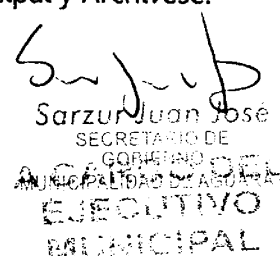 y Archívese.
Sarzur Juan José
SECRETARIO DE
GOBIERNO
MUNICIPALIDAD DE AGUARA
A CARGO DEL
EJECUTIVO
MUNICIPAL